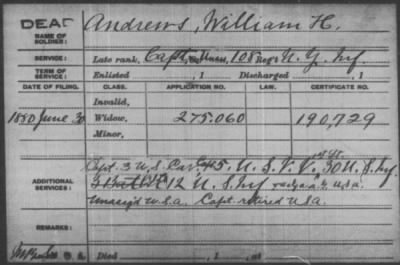 DEAD
NAME OF SOLDIER:
Andrews, William H.
SERVICE:
Late rank, Capt, 108 Reg't N. Y. Inf
TERM OF SERVICE:
Enlisted , 1 Discharged , 1
DATE OF FILING. CLASS. APPLICATION NO. LAW. CERTIFICATE NO.
Invalid,
1880 June 30 Widow, 275.060 190,729
Minor,
ADDITIONAL SERVICES:
Capt. 3 U. S. Cav 45 U. S. I. 30 U. S. Inf.
12 U. S. Inf U.S.A.
Unassig'd U.S.A. Capt. retired U.S.A.
Died , 1 , at